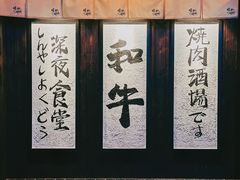 焼肉酒場です
和牛
深夜食堂
しんやしょくどう